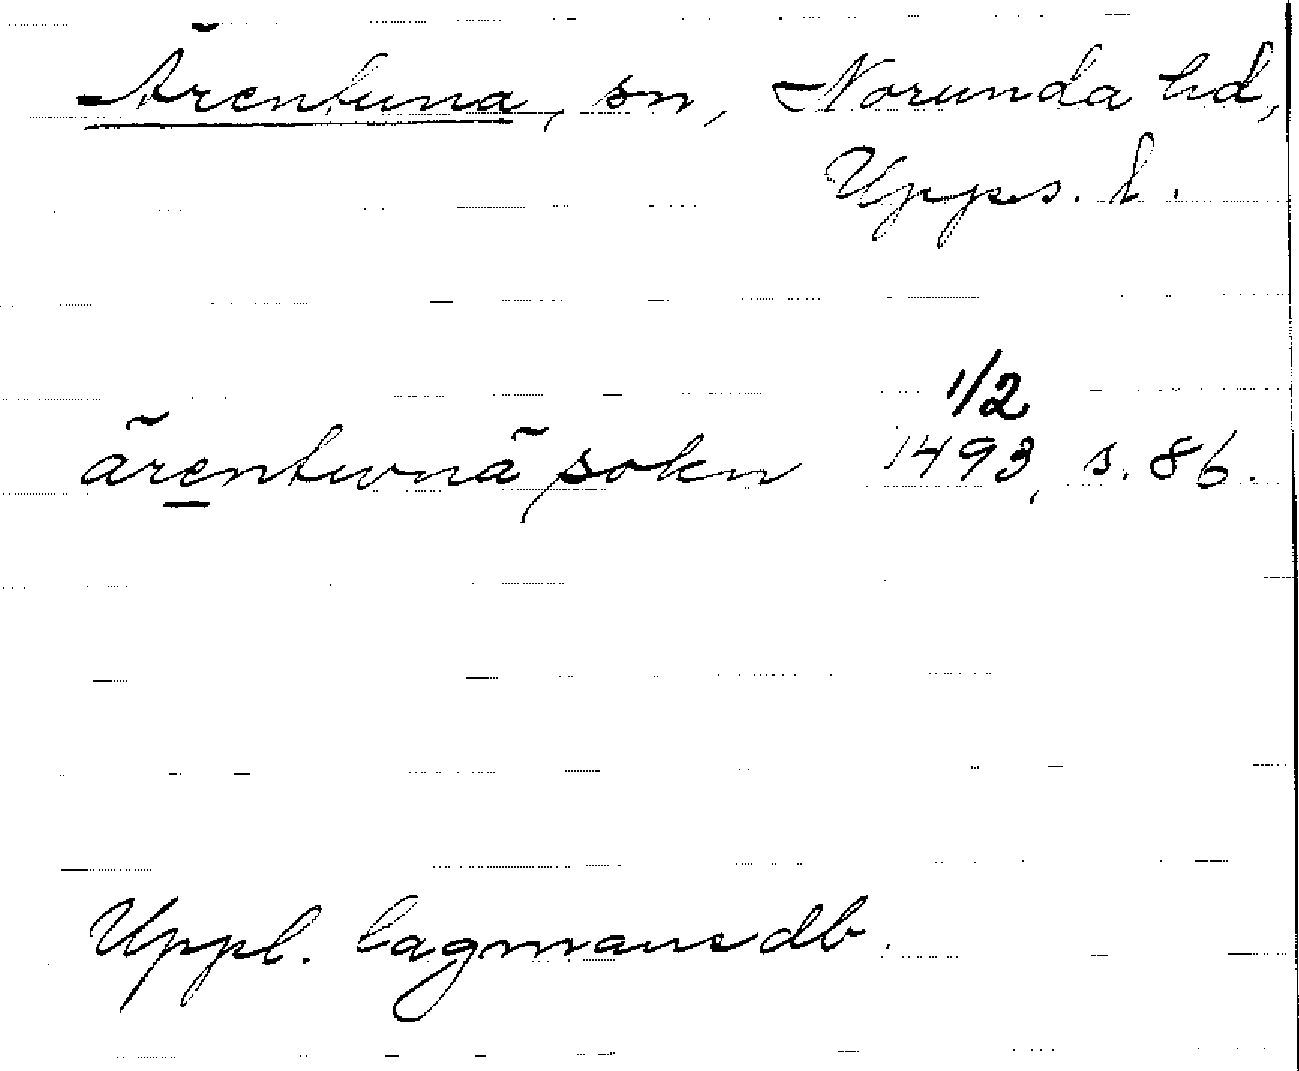 Ärentuna, sn, Norunda hd,
Upps. l.
1/2
ärentwnä sokn 1493, s. 86.
Uppl. lagmansdb.